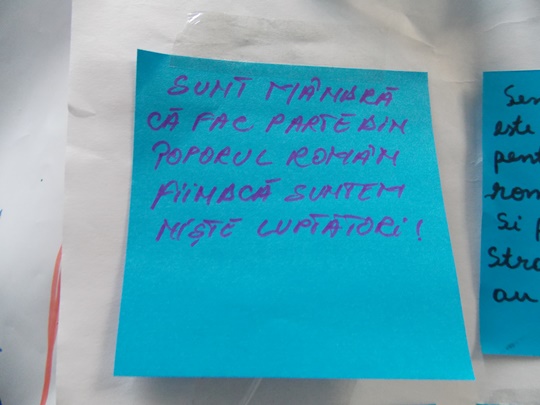 SUNT MÂNDRĂ
CĂ FAC PARTE DIN
POPORUL ROMÂN
FIINDCĂ SUNTEM
NIȘTE LUPTĂTORI!
este
au